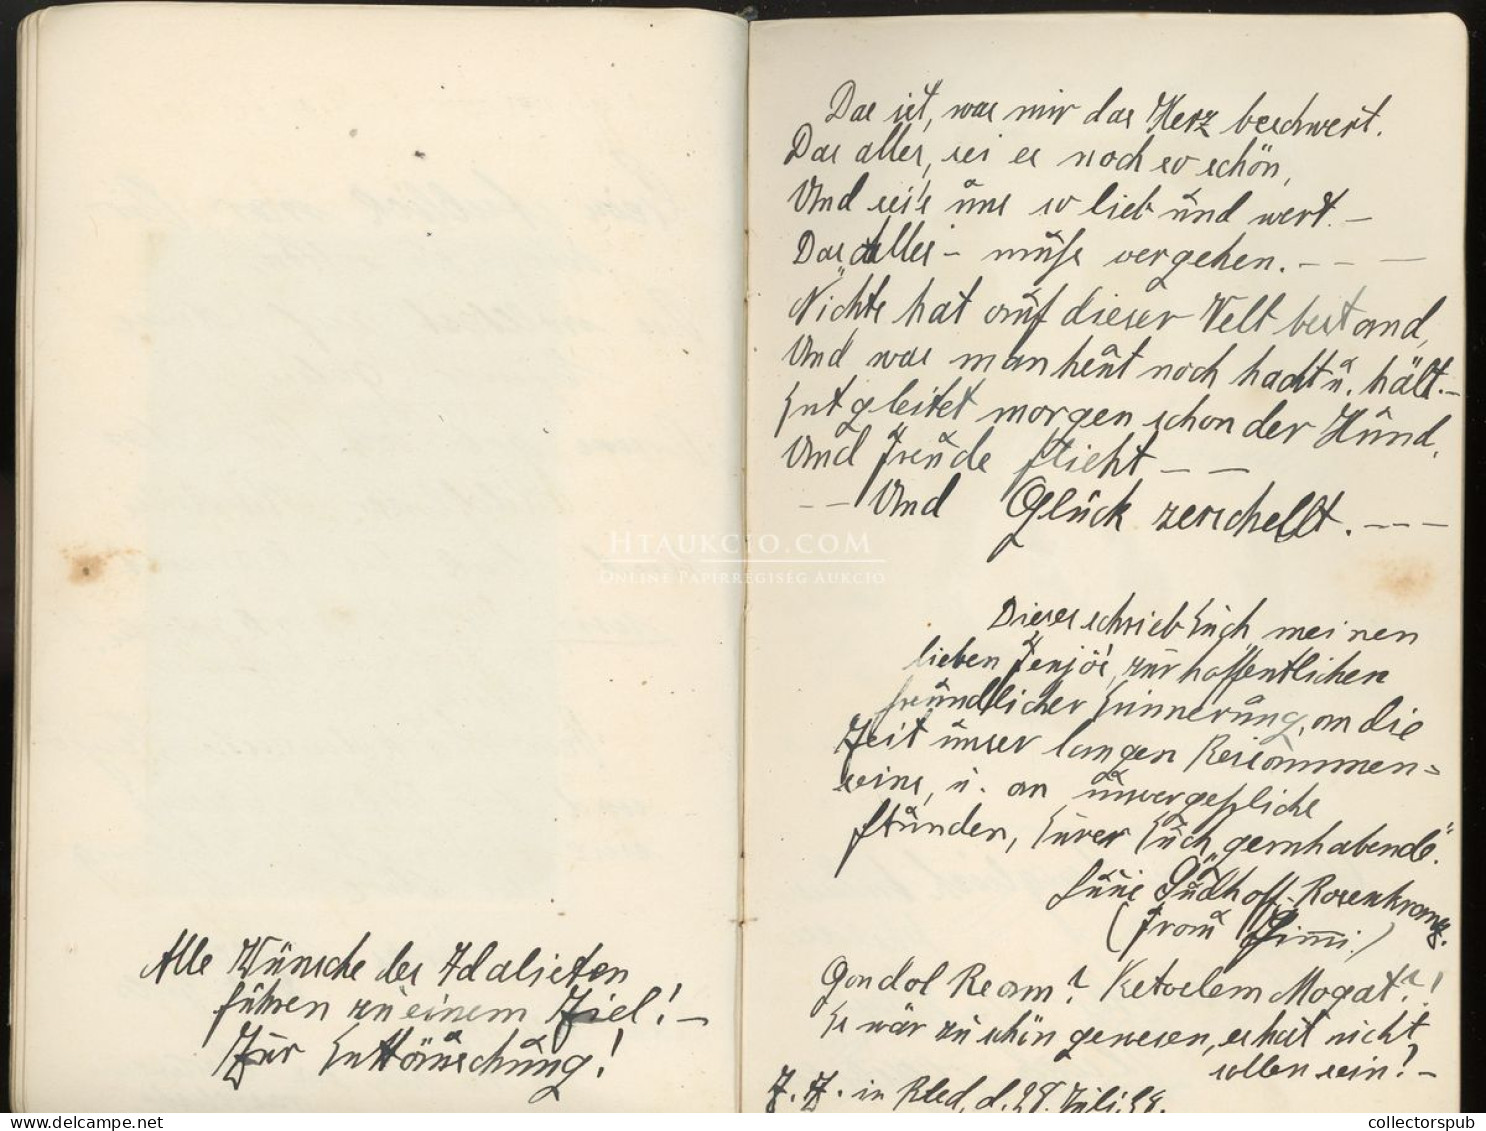 Alle Wünsche des Idalisten
führen zu einem Ziel! –
Zur Enttäuschung!
Das ist, was mir das Herz beschwert.
Das alles, sei es noch so schön,
Und sei's uns so lieb und wert. –
Das „Alles – muß vergehen. – – –
Nichts hat auf dieser Welt bestand,
Und was man heut noch hadt u. hält. –
Entgleitet morgen schon der Hand,
Und Freude flieht – –
– – Und Glück zerschellt. – – –
Dieses schrieb Euch, meinen
lieben, zur hoffentlichen
freundlicher Erinnerung, an die
Zeit unser langen Beisammen=
seins, u. an unvergeßliche
Stunden, Eurer Euch „gernhabende".
Gudhoff-Rosenkranz.
(Frau Gimmi.)
Gondol Ream? Ketvelem Mogat?!
Es wär zu schön gewesen, es hat nicht
sollen sein! –
Z. Z. in Bled, d. 28. Juli
HTAUKCIO.COM
ONLINE PAPÍRRÉGISÉG AUKCIÓ
collectorspub